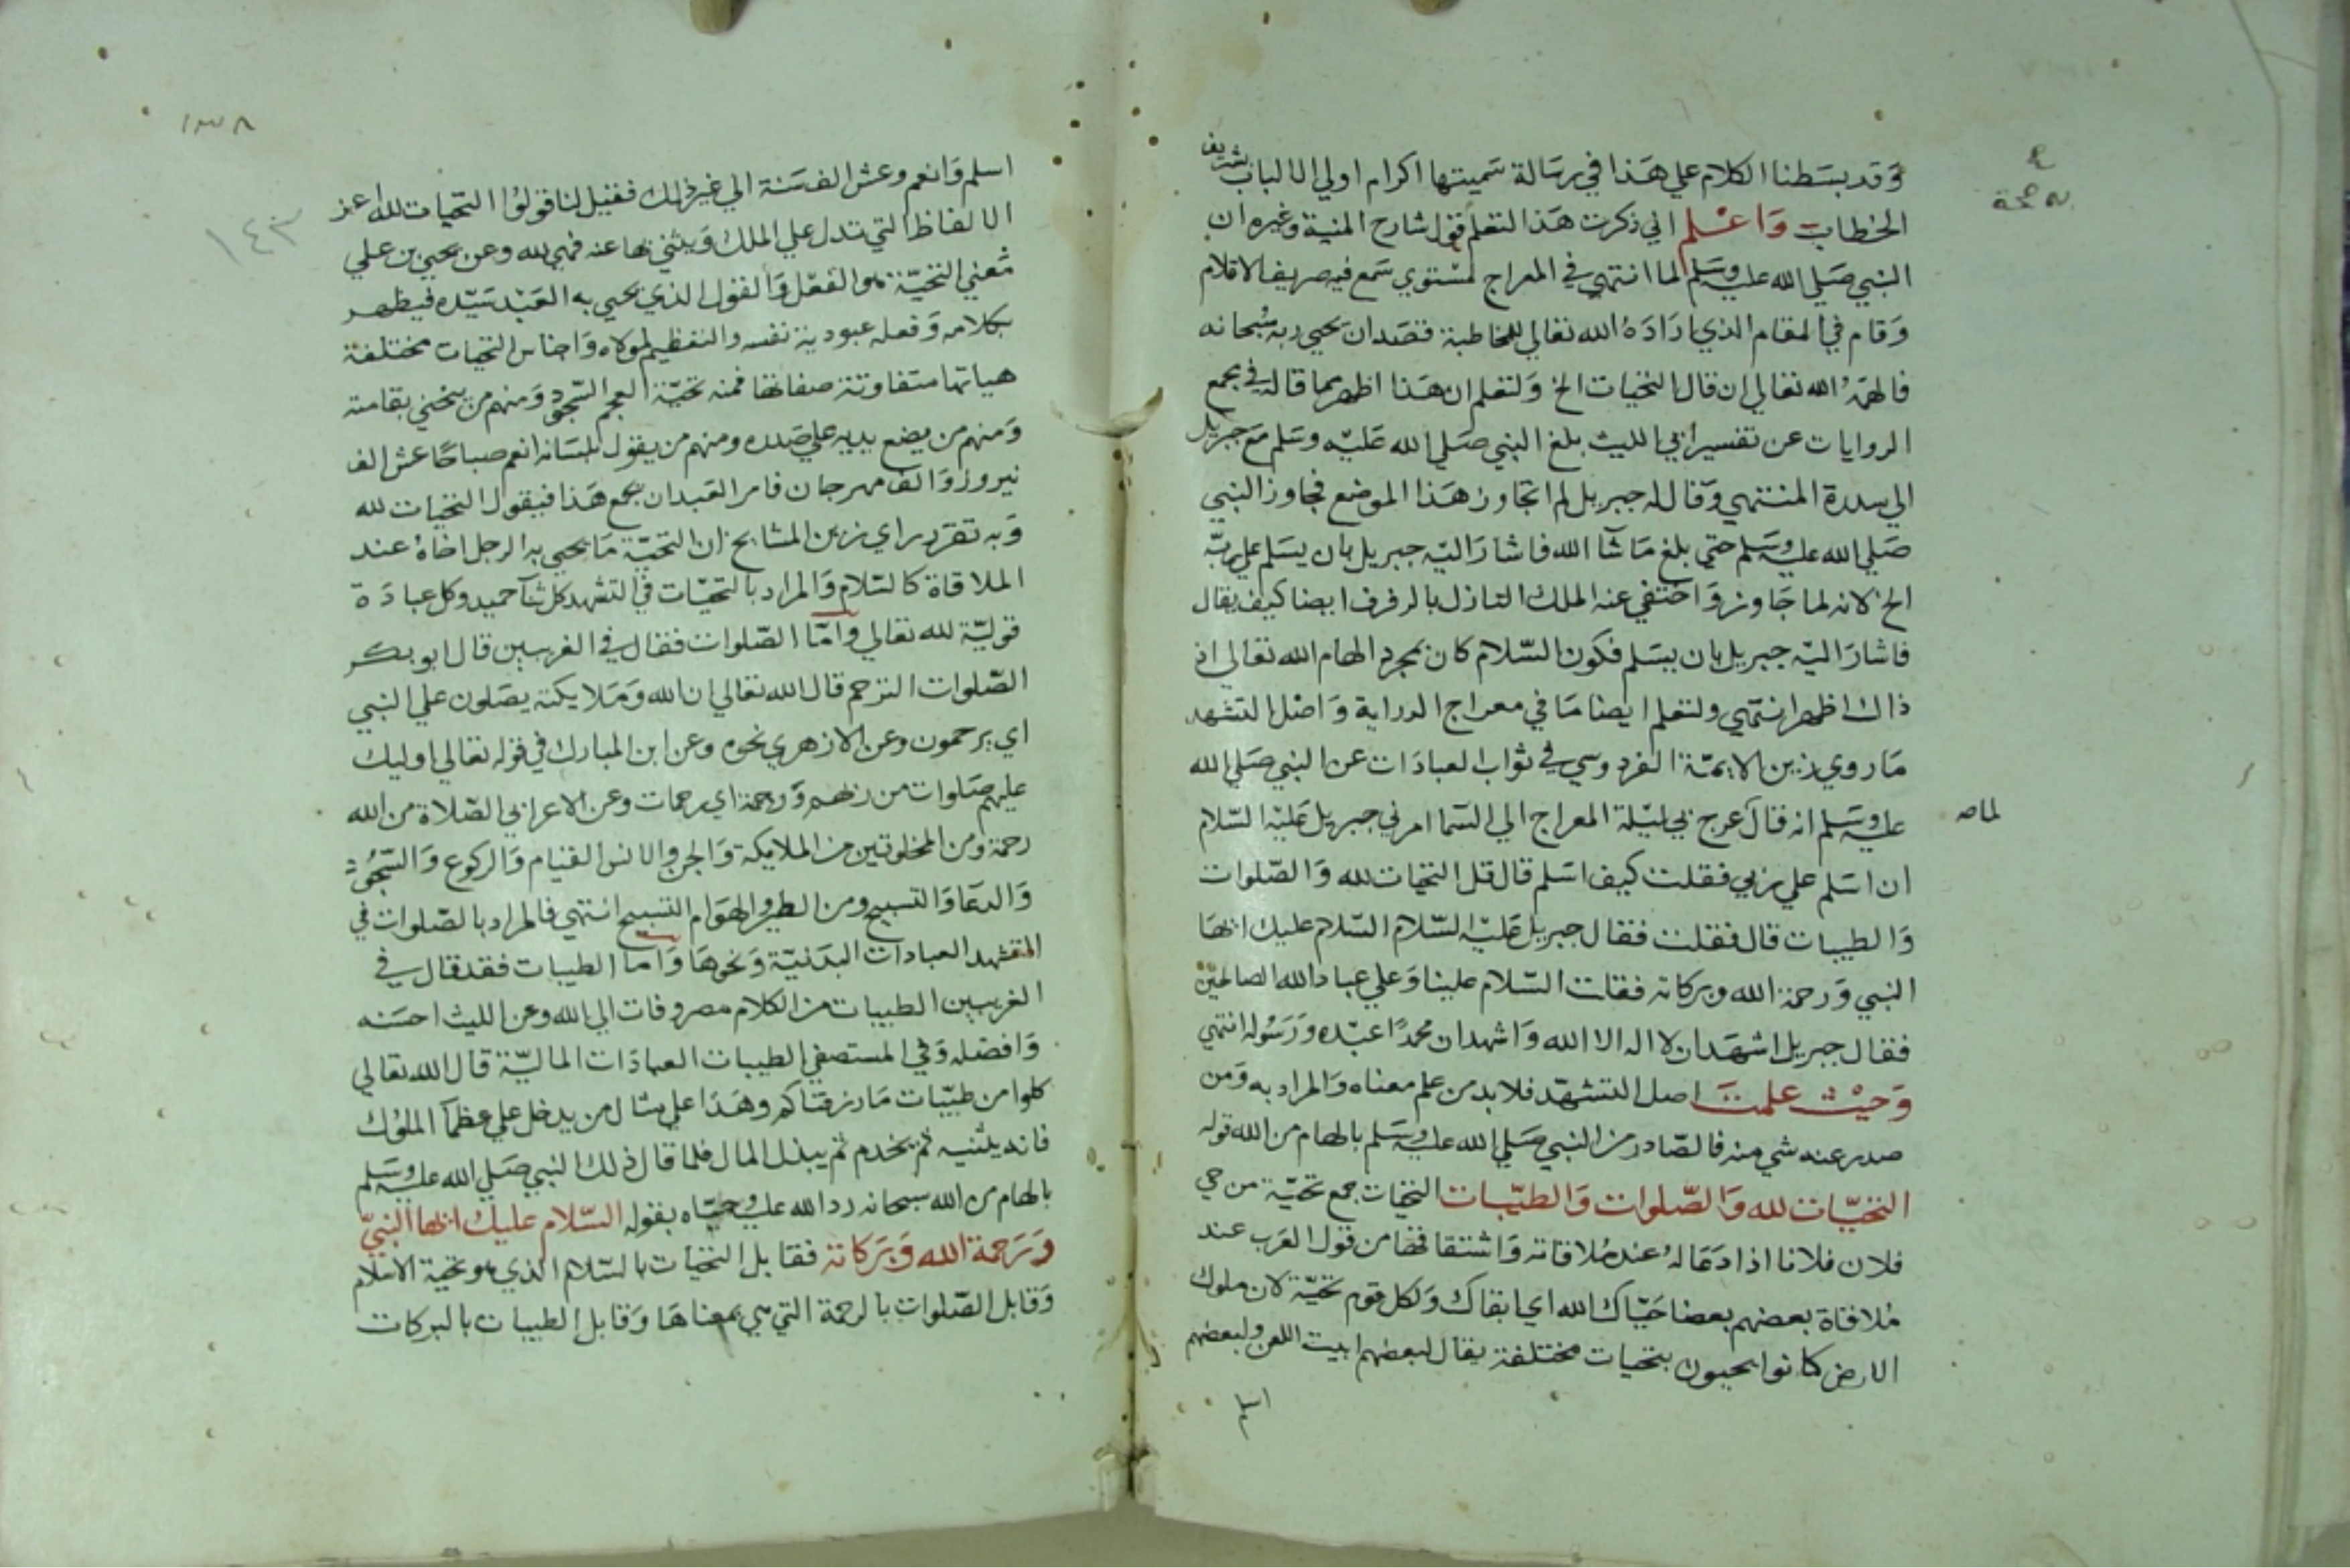 وقد بسطنا الكلام علي هذا في رسالة سميتها اكرام اولي الالباب بشريف
الخطاب واعلم اني ذكرت هذا لتعلم قول شارح المنية وغيره ان
النبي صلي الله عليه وسلم لما انتهي في المعراج لمستوي سمع فيه صريف الاقلام
وقام في المقام الذي اراده الله تعالي للمخاطبة فقصد ان يحيي ربه سبحانه
فالهمه الله تعالي ان قال التحيات الخ ولتعلم ان هذا اظهر مما قاله في مجمع
الروايات عن تفسير ابي الليث بلغ النبي صلي الله عليه وسلم مع جبريل
الي سدرة المنتهي وقال له جبريل لم اتجاوز هذا الموضع فجاوز النبي
صلي الله عليه وسلم حتي بلغ ما شآ الله فاشار اليه جبريل بان يسلم علي ربه
الخ لانه لما جاوز واختفي عنه الملك النازل بالرفرف ايضا كيف يقال
فاشار اليه جبريل بان يسلم فكون السلام كان بمجرد الهام الله تعالي اذ
ذاك اظهر انتهي ولتعلم ايضا ما في معراج الدراية واصل التشهد
ما روي زين الايمة الفردوسي في ثواب العبادات عن النبي صلي الله
عليه وسلم انه قال عرج بي ليلة المعراج الي السما امرني جبريل عليه السلام
لماصـ
ان اسلم علي ربي فقلت كيف اسلم قال قل التحيات لله والصلوات
والطيبات قال فقلت فقال جبريل عليه السلام السلام عليك ايها
النبي ورحمة الله وبركاته فقلت السلام علينا وعلي عباد الله الصالحين
فقال جبريل اشهد ان لا اله الا الله واشهد ان محمدا عبده ورسوله انتهي
وحيث علمت اصل التشهد فلا بد من علم معناه والمراد به ومن
صدر عنه شي منه فالصادر من النبي صلي الله عليه وسلم بالهام من الله قوله
التحيات لله والصلوات والطيبات التحيات جمع تحية من حي
فلان فلانا اذا دعا له عند ملاقاته واشتقاقها من قول العرب عند
ملاقاة بعضهم بعضا حياك الله اي ابقاك ولكل قوم تحية لان ملوك
الارض كانوا يحيون بتحيات مختلفة يقال لبعضهم ابيت اللعن ولبعضهم
اسلم
١٣٨
١٤٣
اسلم وانعم وعش الف سنة الي غير ذلك فقيل لنا قولوا التحيات لله اعز
الالفاظ التي تدل علي الملك ويثني بها عنه فهي لله وعن يحيي بن علي
معني التحية هو الفعل والقول الذي يحيي به العبد سيده فيظهر
بكلامه وفعله عبودية نفسه والتعظيم لمولاه واجناس التحيات مختلفة
هياتها متفاوتة صفاتها فمنه تحية العجم السجود ومنهم من ينحني بقامته
ومنهم من يضع يديه علي صدره ومنهم من يقول بلسانه انعم صباحا عش الف
نيروز والف مهرجان فامر العبد ان يجمع هذا فيقول التحيات لله
وبه تقرر راي زين المشايخ ان التحية ما يحيي به الرجل اخاه عند
الملاقاة كالسلام والمراد بالتحيات في التشهد كل ثنآ حميد وكل عبادة
قولية لله تعالي واما الصلوات فقال في الغريبين قال ابو بكر
الصلوات الترحم قال الله تعالي ان الله وملايكته يصلون علي النبي
اي يرحمون وعن الازهري نحوه وعن ابن المبارك في قوله تعالي اوليك
عليهم صلوات من ربهم ورحمة اي رحمات وعن الاعرابي الصلاة من الله
رحمة ومن المخلوقين من الملايكة والجن والانس القيام والركوع والسجود
والدعا والتسبيح ومن الطير والهوام التسبيح انتهي فالمراد بالصلوات في
التشهد العبادات البدنية ونحوها واما الطيبات فقد قال في
الغريبين الطيبات من الكلام مصروفات الي الله وعن الليث احسنه
وافضله وفي المستصفي الطيبات العبادات المالية قال الله تعالي
كلوا من طيبات ما رزقناكم وهذا علي مثال من يدخل علي عظمآ الملوك
فانه يثنيه ثم يخدم ثم يبذل المال فلما قال ذلك النبي صلي الله عليه وسلم
بالهام من الله سبحانه رد الله عليه وحياه بقوله السلام عليك ايها النبي
ورحمة الله وبركاته فقابل التحيات بالسلام الذي هو تحية الاسلام
وقابل الصلوات بالرحمة التي هي بمعناها وقابل الطيبات بالبركات